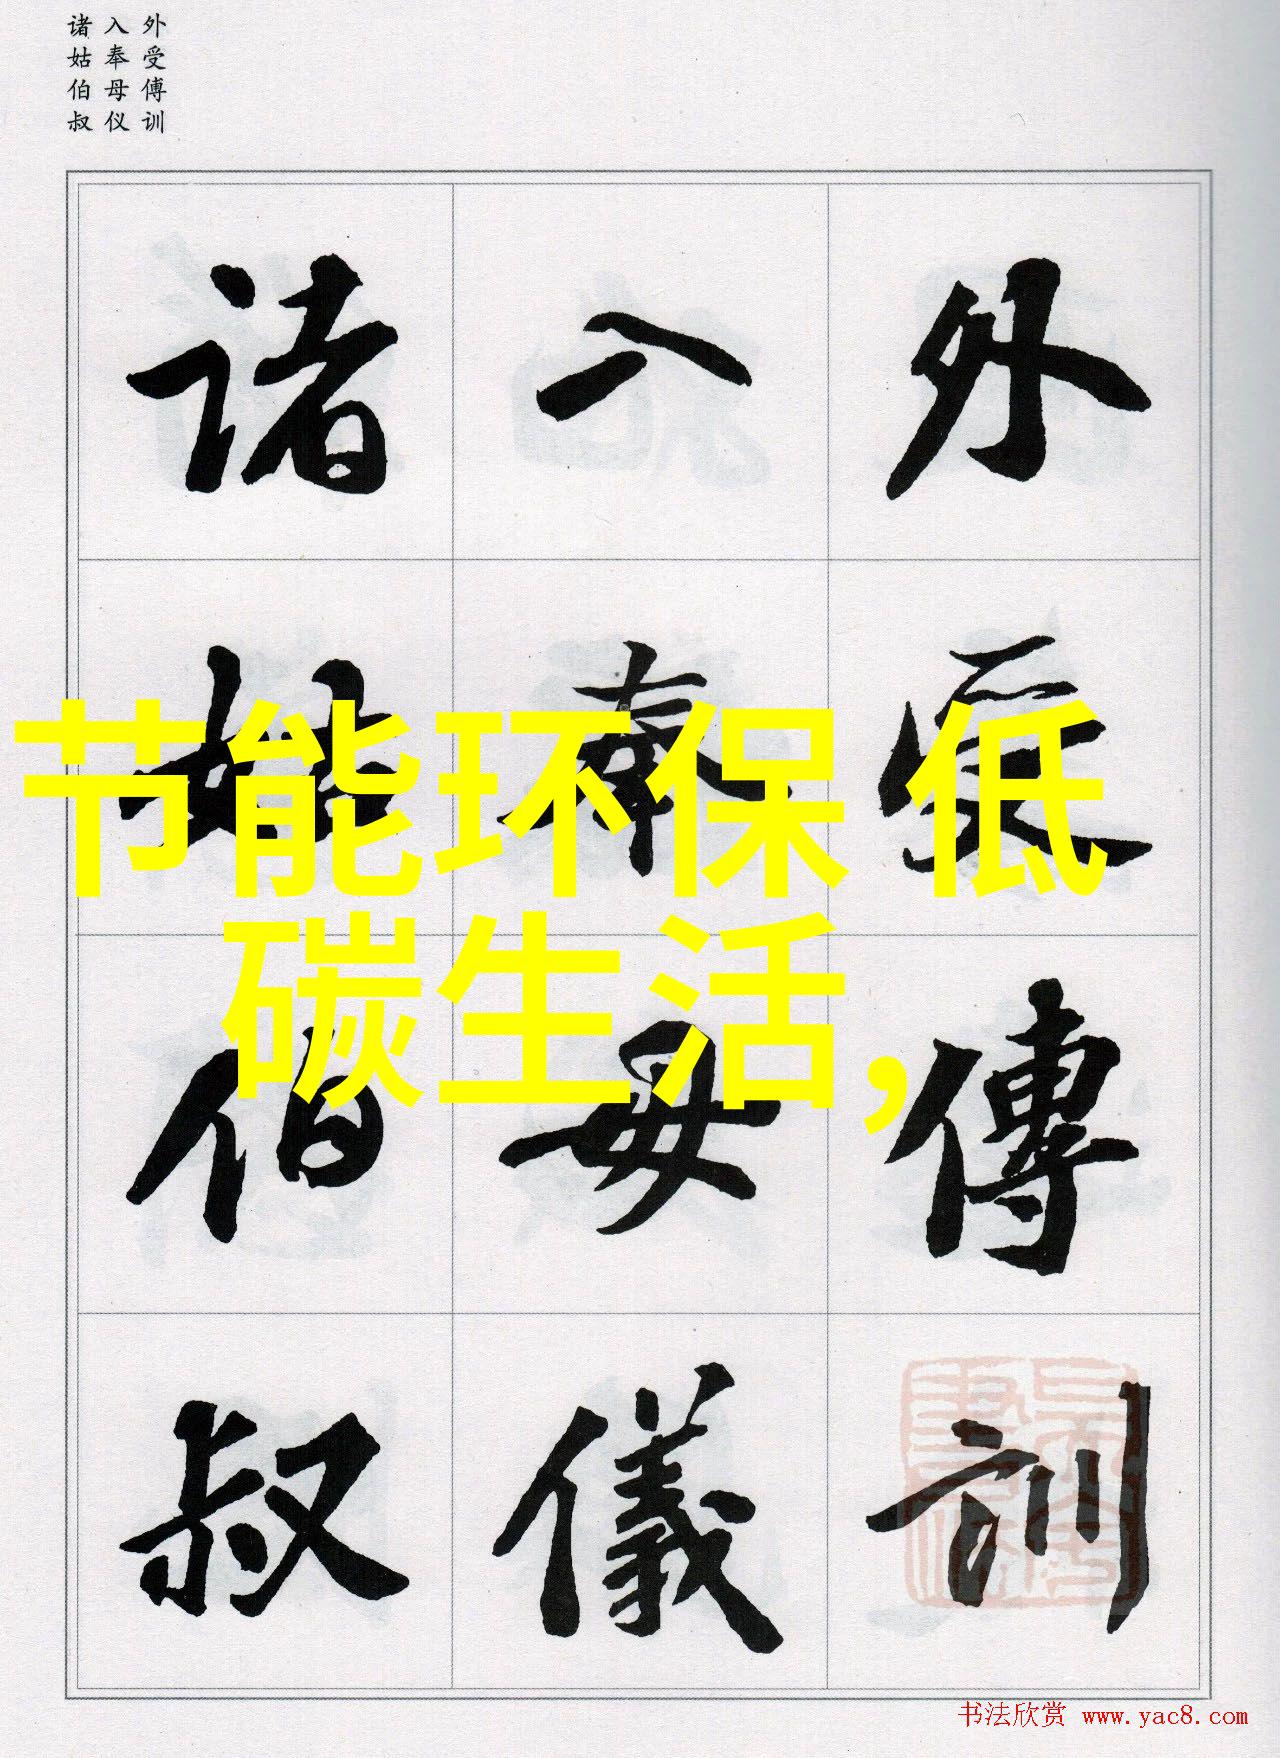 外受傅训
入奉母仪
诸姑伯叔
外受傳訓
入奉母儀
诸姑伯叔
节能环保 低
碳生活,
书法欣赏 www.yac8.com